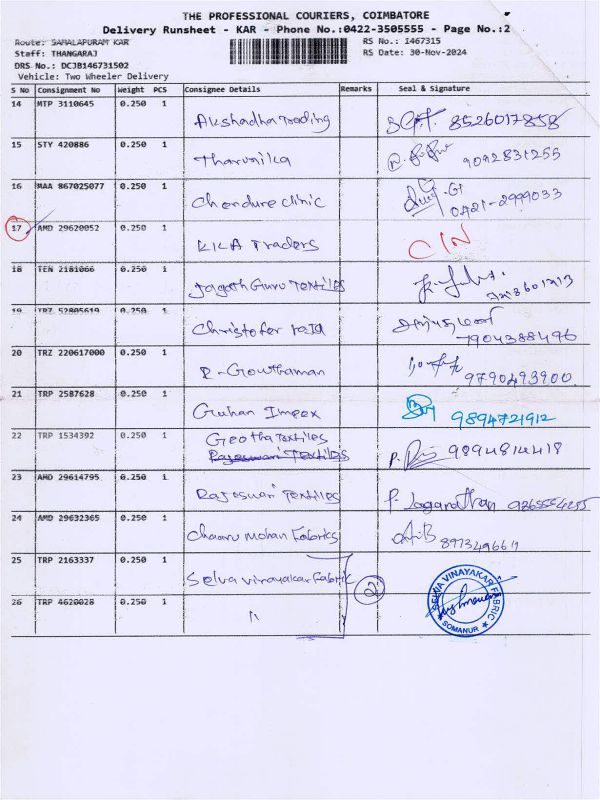 THE PROFESSIONAL COURIERS, COIMBATORE
Delivery Runsheet - KAR - Phone No.:0422-3505555 - Page No.:2
Route: SAMALAPURAM KAR
RS No.: I467315
Staff: THANGARAJ
RS Date: 30-Nov-2024
DRS No.: DCJB146731502
Vehicle: Two Wheeler Delivery
S No Consignment No Weight PCS Consignee Details Remarks Seal & Signature
14 MTP 3110645 0.250 1
Akshadha Trading 8526017858
15 STY 420886 0.250 1
Tharunika 9092831255
16 MAA 867025077 0.250 1
Chendure clinic 0421-2999033
17 AMD 29620052 0.250 1
KKA Traders C/N
18 TEN 2181066 0.250 1
Jagath Guru Textiles
19 TRZ 52805619 0.250 1
Christofer raja 7904388496
20 TRZ 220617000 0.250 1
R-Gowthaman 9790493900
21 TRP 2587628 0.250 1
Guhan Impex 9894721912
22 TRP 1534392 0.250 1
Geetha Textiles
Rajeswari Textiles 9894814418
23 AMD 29614795 0.250 1
Rajeswari Textiles P. Loganathan 9365554255
24 AMD 29632365 0.250 1
Chaaru Mohan Fabrics
25 TRP 2163337 0.250 1
Selva Vinayakar Fabric 2
26 TRP 4620028 0.250 1
"
SELVA VINAYAKAR FABRIC
SOMANUR